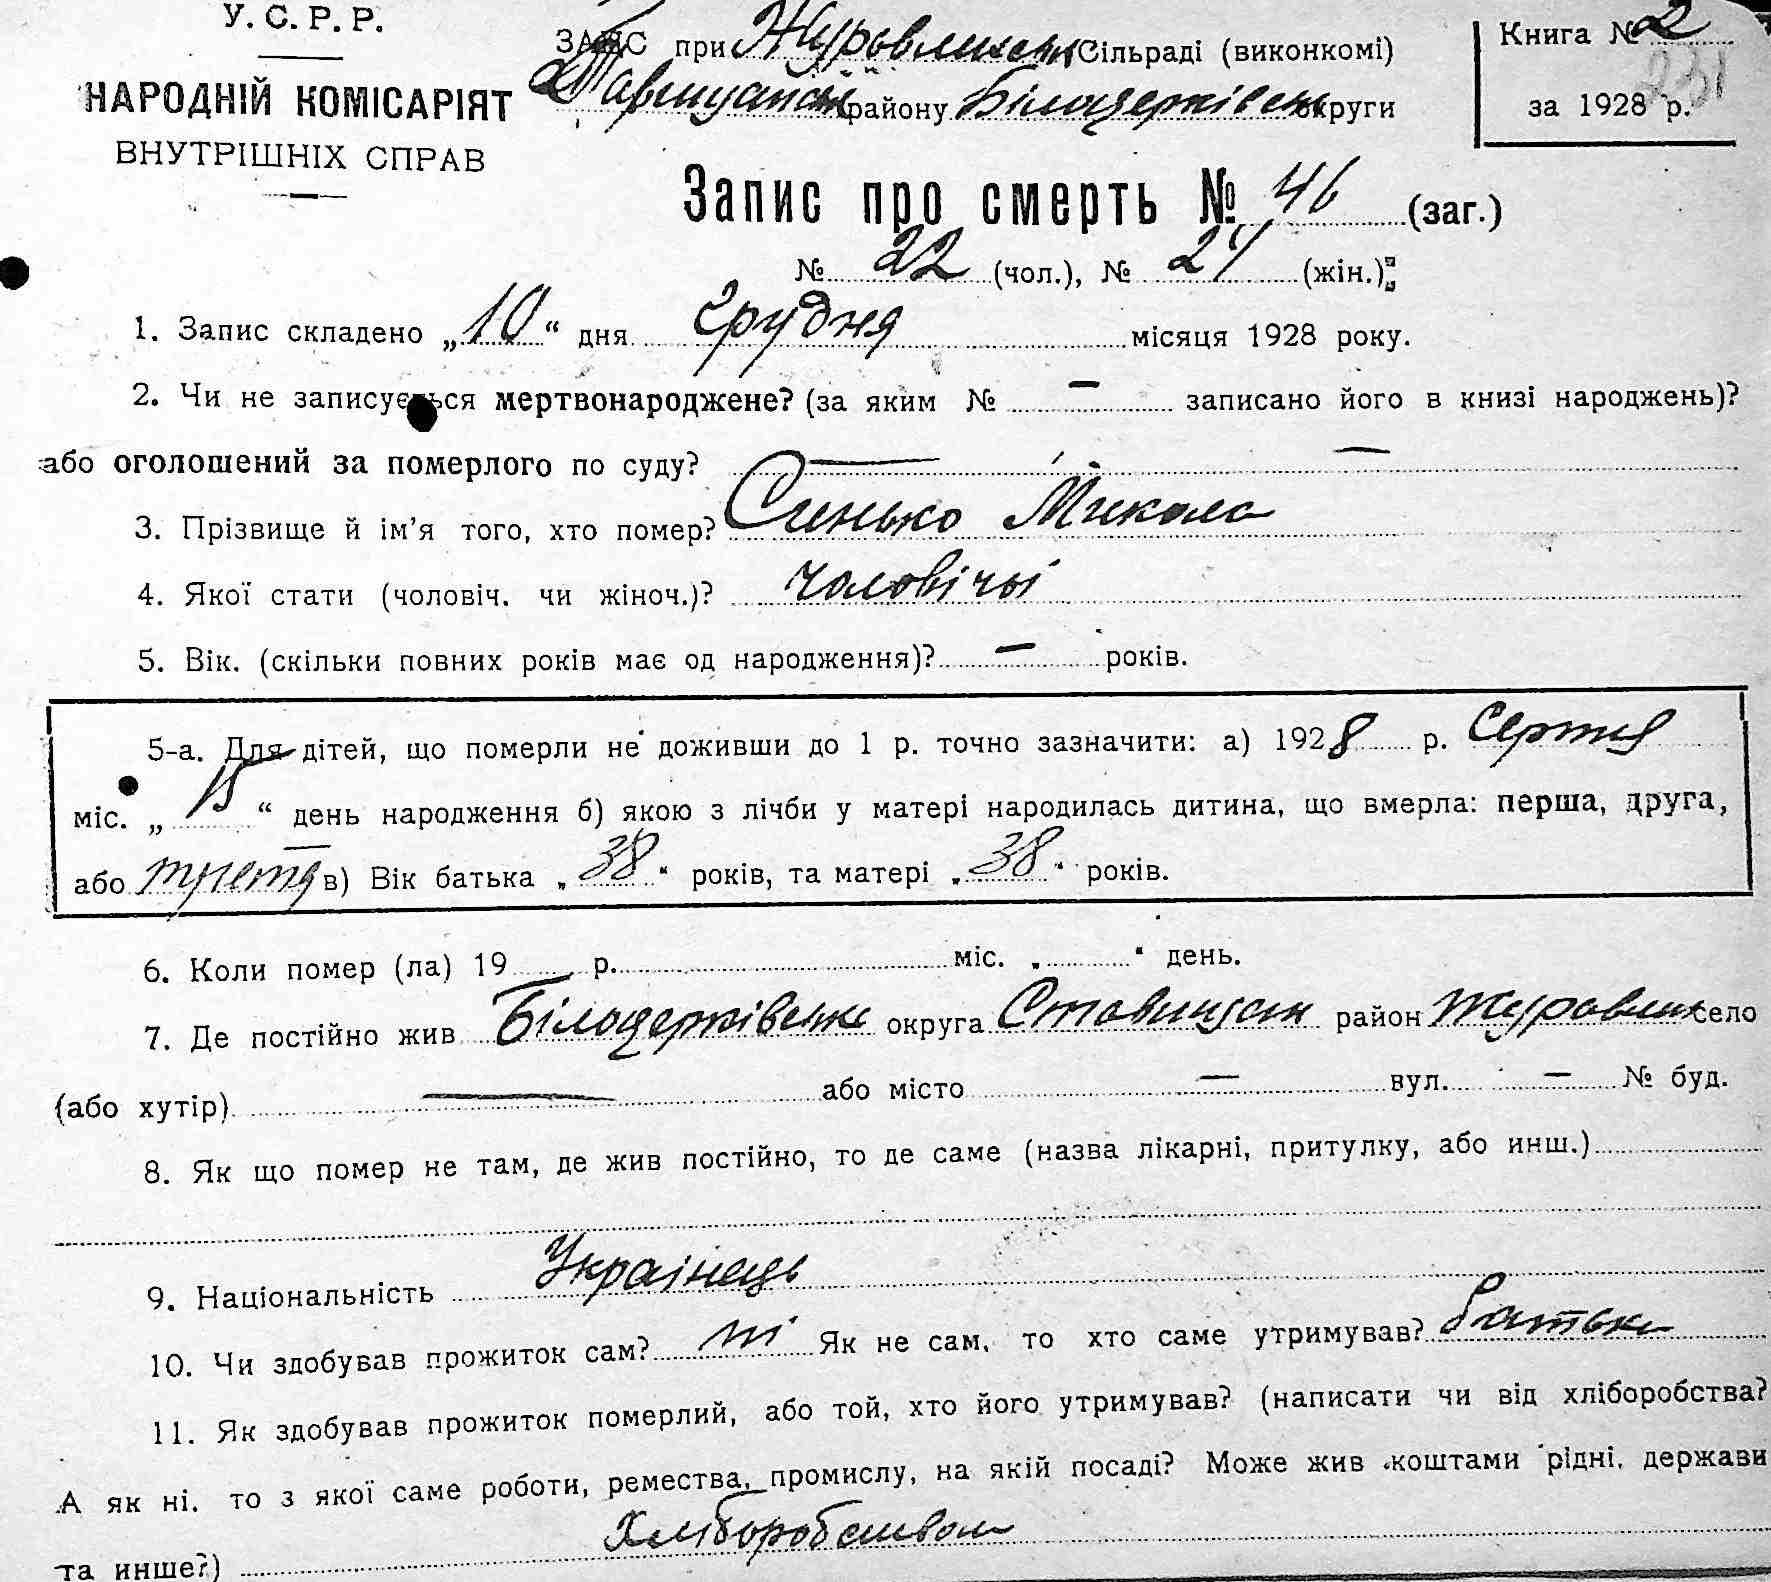 У. С. Р. Р.
НАРОДНІЙ КОМІСАРІЯТ
ВНУТРІШНІХ СПРАВ
ЗАГС при Журавлиськ Сільраді (виконкомі)
Ставищанськ району Білоцерківськ округи
Книга № 2
231
за 1928 р.
Запис про смерть № 46 (заг.)
№ 22 (чол.), № 24 (жін.)
1. Запис складено „10“ дня грудня місяця 1928 року.
2. Чи не записується мертвонароджене? (за яким № — записано його в книзі народжень)?
або оголошений за померлого по суду? — —
3. Прізвище й ім’я того, хто помер? Синько Микола
4. Якої стати (чоловіч. чи жіноч.)? чоловічої
5. Вік. (скільки повних років має од народження)? — років.
5-а. Для дітей, що померли не доживши до 1 р. точно зазначити: а) 1928 р. Серпня
міс. „15“ день народження б) якою з лічби у матері народилась дитина, що вмерла: перша, друга,
або третя в) Вік батька „38“ років, та матері „38“ років.
6. Коли помер (ла) 19 р. міс. „ “ день.
7. Де постійно жив Білоцерківське округа Ставищан район Журавлиськ село
(або хутір) — або місто — вул. — № буд.
8. Як що помер не там, де жив постійно, то де саме (назва лікарні, притулку, або инш.)
9. Національність Українець
10. Чи здобував прожиток сам? ні Як не сам, то хто саме утримував? батьки
11. Як здобував прожиток померлий, або той, хто його утримував? (написати чи від хліборобства?
А як ні, то з якої саме роботи, ремества, промислу, на якій посаді? Може жив коштами рідні, держави
та инше?) Хліборобством